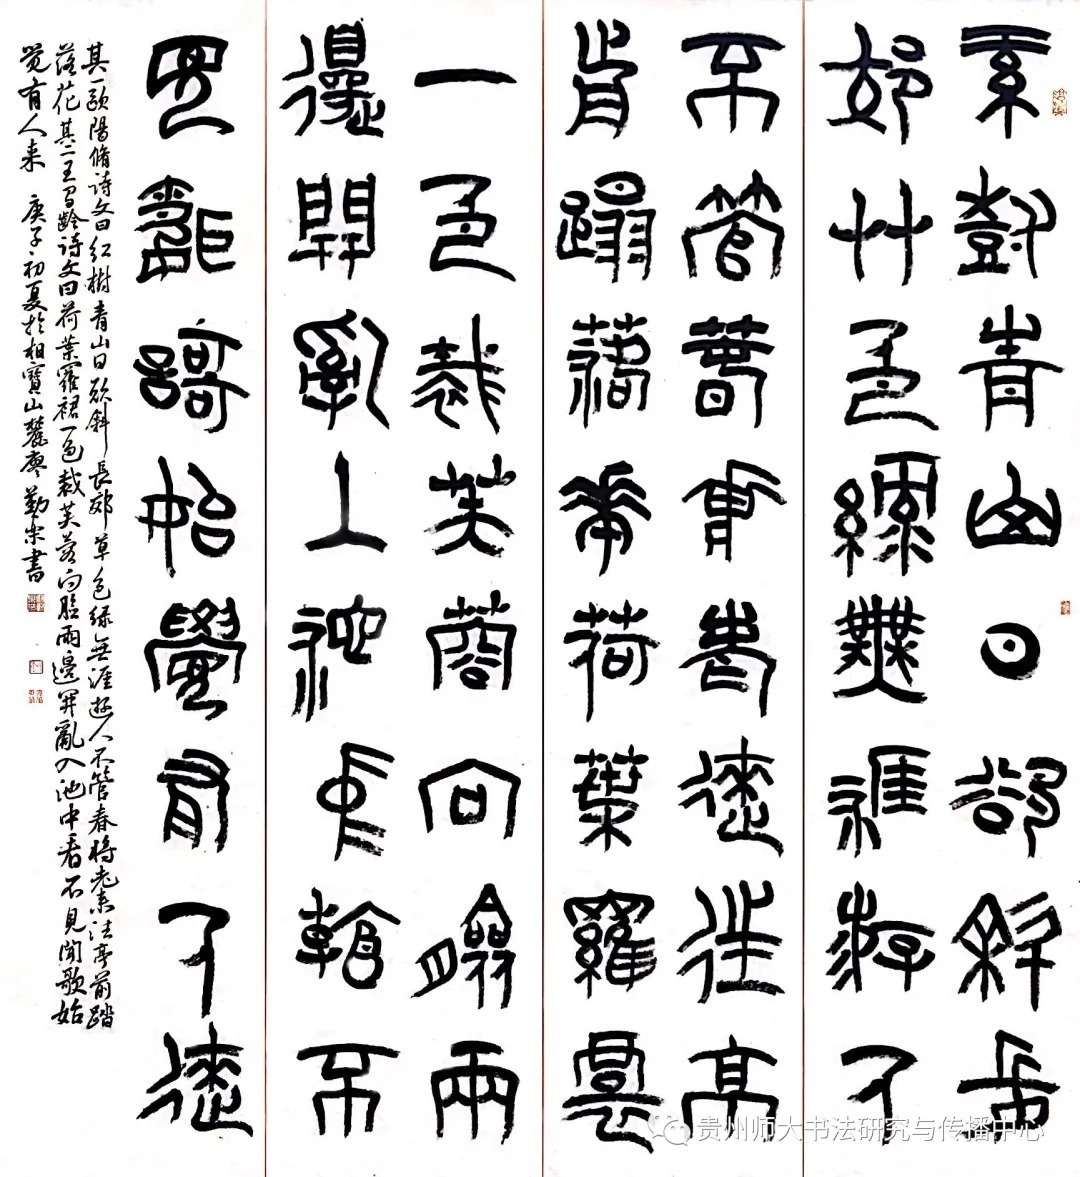 紅樹青山日欲斜長
郊艸色綠無涯遊人
不管春將老來往亭
前蹋落華荷葉羅裙
一色裁芙蓉向臉兩
邊開亂入池中看不
見聞歌始覺有人來
其一歐陽脩詩文曰紅樹青山日欲斜長郊草色绿無涯遊人不管春將老來往亭前踏
落花其二王昌齡詩文曰荷葉羅裙一色裁芙蓉向臉兩邊開亂入池中看不見聞歌始
觉有人来 庚子初夏於相寶山麓廖勤樂書
贵州师大书法研究与传播中心